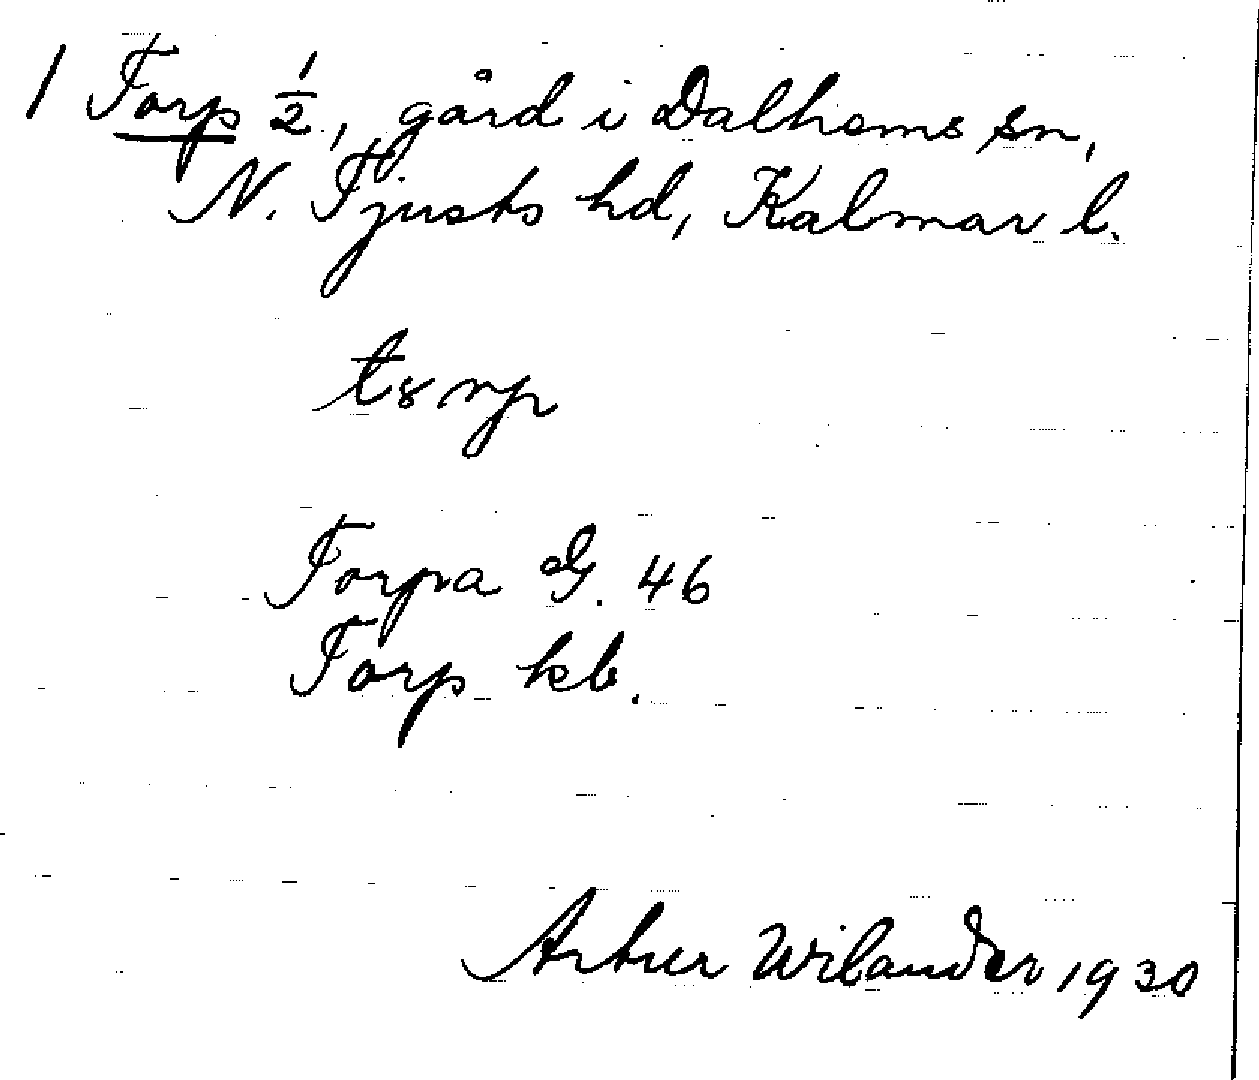 1 Torp ½, gård i Dalhems sn,
N. Tjusts hd, Kalmar l.
Torpa G. 46
Torp kb.
Artur Wilander 1930